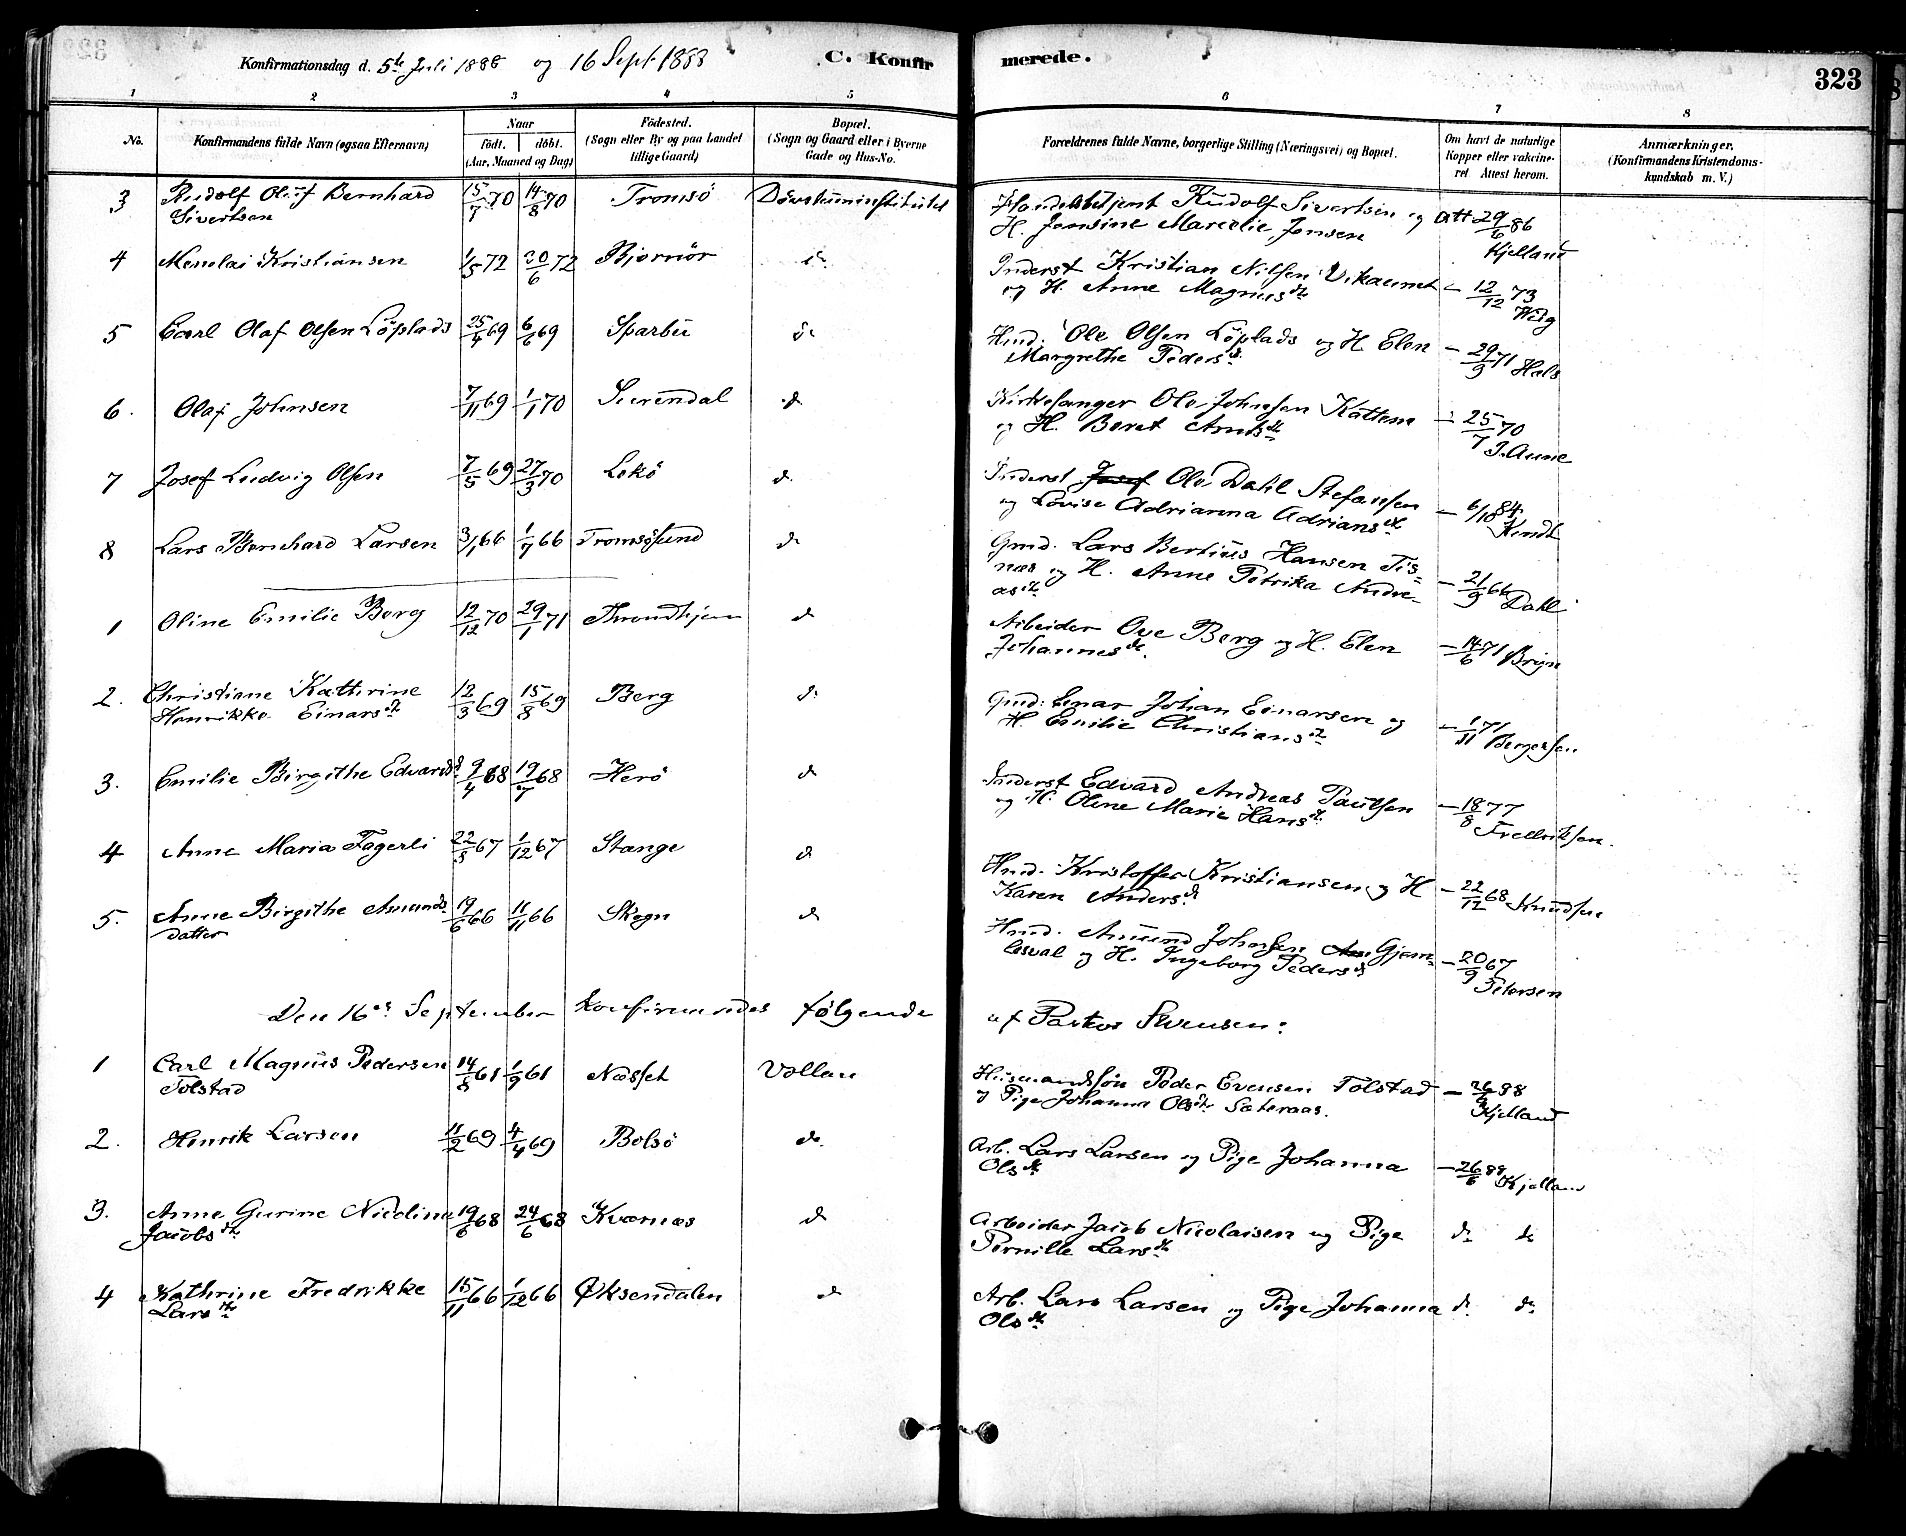 Konfirmationsdag d. 5te Juli 1888 og 16 Sept 1888 C. Konfirmerede. 323
1 2 3 4 5 6 7 8
No. Konfirmandens fulde Navn (ogsaa Efternavn) Naar födt. döbt. (Aar, Maaned og Dag) Födested. (Sogn eller By og paa Landet tillige Gaard) Bopæl. (Sogn og Gaard eller i Byerne Gade og Hus-No. Forældrenes fulde Navne, borgerlige Stilling (Næringsvei) og Bopæl. Om havt de naturlige Kopper eller vakcineret Attest herom. Anmærkninger. (Konfirmandens Kristendomskundskab m. V.)
3 Rudolf Oluf Bernhard 15/7 70 14/8 70 Tromsö Døvstuminstitutet Handelsbetjent Rudolf Sivertsen og Att 29/6 86
Sivertsen H. Jensine Marcelie Jensen Kjelland
4 Menolai Kristiansen 1/5 72 30/6 72 Bjornör d Inderst Kristian Nilsen Vikaunet – 12/12 73
og H. Anne Magnusdtr Wiig
5 Carl Olaf Olsen Löplads 25/4 69 6/6 69 Sparbu d Hmd. Ole Olsen Löplads og H. Elen – 29/9 71 Hals
Margrethe Pedersd.
6. Olaf Johnsen 7/11 69 1/1 70 Surendal d Kirkesanger Ole Johnsen Kattem – 25/7 70
og H. Beret Arntsdtr J. Aune
7 Josef Ludvig Olsen 7/5 69 27/3 70 Lekö d. Inderst Josef Ole Dahl Stefansen – 6/10 84
og Lovise Adrianna Adriansdtr Kindt
8 Lars Bernhard Larsen 3/1 66 1/7 66 Tromsösund d Gmd. Lars Bertius Hansen Tis-
næs og H. Anne Petrika Andre- – 21/9 66 Dahl
asdtr
1 Oline Emilie Berg 12/12 70 29/1 71 Throndhjem d Arbeider Ove Berg og H. Elen – 14/6 71 Bryn
Johannesdtr.
2. Christiane Kathrine 12/3 69 15/8 69 Berg d. Gmd. Einar Johan Einarsen og – 1/11 71 Bergersen
Henrikke Einarsdtr H. Emilie Christiansdtr
3. Emilie Birgithe Edvardsd 9/4 68 19/7 68 Herö d Inderst Edvard Andreas Paulsen – 18/8 77
og H. Oline Marie Hansdtr Fredriksen.
4 Anne Maria Fagerli 22/8 67 1/12 67 Stange d Hmd. Kristoffer Kristiansen og H – 22/12 68 Knudsen
Karen Andersd
5. Anne Birgithe Amunds 19/6 66 11/11 66 Skogn d Hmd. Amund Johnsen Am Gjem-
datter lesval og H. Ingeborg Pedersd – 20/9 67
Petersen
Den 16de September konfirmeredes følgende af Pastor Svensen:
1 Carl Magnus Pedersen 14/8 61 1/9 61 Næsset Vollan Husmandsön Peder Evensen Tolstad – 26/6 88
Tolstad og Pige Johanna Olsdtr Sæteraas. Kjelland
2. Henrik Larsen 11/2 69 4/4 69 Bolsö do. Arb. Lars Larsen og Pige Johanna – 26/6 88 Kjelland
Olsdtr
3. Anne Gurine Nicoline 19/6 68 24/6 68 Kvernes d Arbeider Jacob Nicolaisen og Pige d. do
Jacobsdtr Pernille Larsdtr
4 Kathrine Fredrikke 15/11 66 1/12 66 Øksendalen d Arb. Lars Larsen og Pige Johanna d. do
Larsdtr Olsdtr